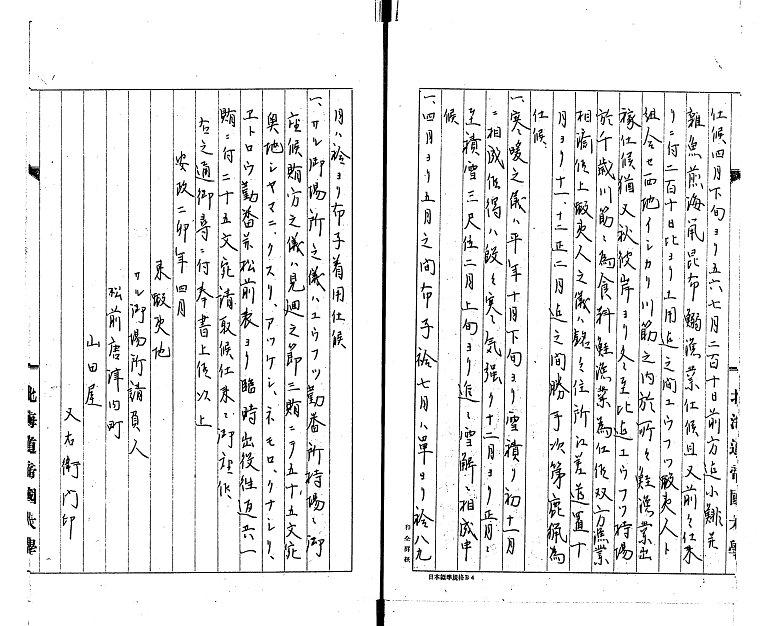 仕候四月下旬ヨリ五六七月二百十日前方迄小鯡并
雑魚煎海鼠昆布鰯漁業仕候且又前々仕来
リニ付二百十日比ヨリ土用迄之間ユウフツ蝦夷人ト
組合セ西地イシカリ川筋之内於所々鮭漁業出
稼仕候猶又秋彼岸ヨリ冬至比迄ユウフツ持場
於千歳川筋ニ為食料鮭漁業為仕候双方漁業
相済候上蝦夷人之儀ハ銘々住所江差遣置十
月ヨリ十一、十二正二月迄之間勝手次第鹿猟為
仕候
一、寒暖之儀ハ平年十月下旬ヨリ雪積リ初十一月
ニ相成候得ハ段々寒気強ク十二月ヨリ正月ニ
至積雪三尺位二月上旬ヨリ追々雪解ニ相成申
候
一、四月ヨリ五月之間布子袷七月ハ単ヨリ袷八九
月ハ袷ヨリ布子着用仕候
一、サル御場所之儀ハユウフツ勤番所持場ニ御
座候賄方之儀ハ見廻之節ニ賄ニヲ五十、五文宛
奥地シヤマニ、クスリ、アツケシ、ネモロ、クナシリ、
エトロウ勤番并松前表ヨリ臨時出役往返共一
賄ニ付二十五文宛請取候仕来ニ御座候、
右之通御尋ニ付奉書上候以上
安政二卯年四月
東蝦夷地
サル御場所請負人
松前唐津内町
山田屋
又右衛門印
北海道帝國大學
北海道帝國大學
日本標準規格B4